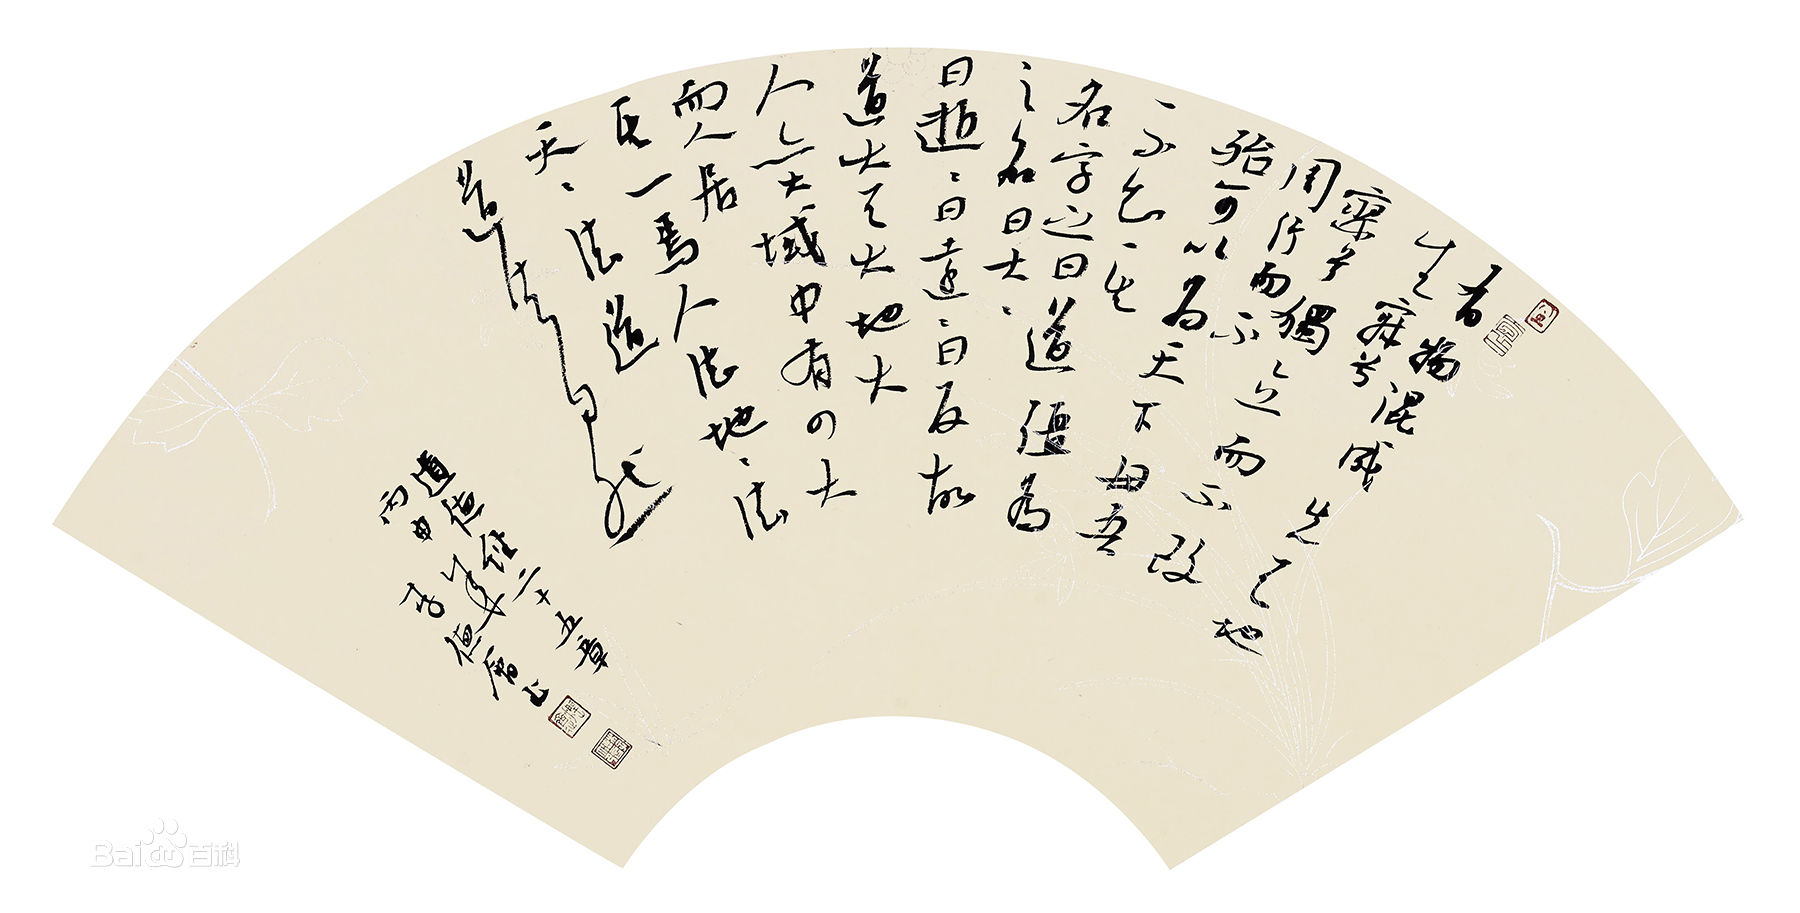 有物混成先天地
生寂兮
寥兮獨立而不改
周行而不
殆可以为天下母吾
不知其
名字之曰道強为
之名曰大〻
曰逝〻曰遠〻曰反故
道大天大地大
人亦大域中有四大
而人居
其一焉人法地〻法
天〻法道
道法自然
道德經二十五章
丙申年
李德书
Bai百科